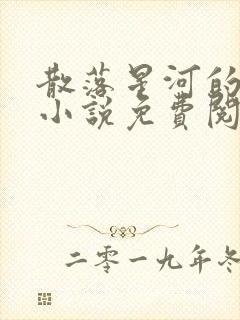 散落星河的
小説免費閱
二零一九年冬